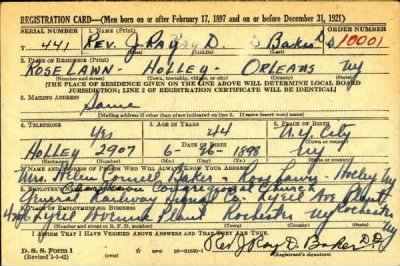 REGISTRATION CARD—(Men born on or after February 17, 1897 and on or before December 31, 1921)
SERIAL NUMBER 1. NAME (Print) ORDER NUMBER
T 441 REV. J. RAY D. Baker 10001
2. PLACE OF RESIDENCE (Print)
ROSE LAWN - HOLLEY - ORLEANS NY
(Number and street) (Town, township, village, or city) (County) (State)
[THE PLACE OF RESIDENCE GIVEN ON THE LINE ABOVE WILL DETERMINE LOCAL BOARD
JURISDICTION; LINE 2 OF REGISTRATION CERTIFICATE WILL BE IDENTICAL]
3. MAILING ADDRESS
Same
[Mailing address if other than place indicated on line 2. If same insert word same]
4. TELEPHONE 5. AGE IN YEARS 6. PLACE OF BIRTH
Yes 44 N.Y. City
DATE OF BIRTH
HOLLEY 2907 6- 26- 1898 NY
(Exchange) (Number) (Mo.) (Day) (Yr.) (State or country)
7. NAME AND ADDRESS OF PERSON WHO WILL ALWAYS KNOW YOUR ADDRESS
Mrs. Helen Baker - Rose Lawn - Holley NY
8. EMPLOYER'S NAME AND ADDRESS
Congregational Church
General Railway Signal Co - Lyell Ave Plant
9. PLACE OF EMPLOYMENT OR BUSINESS
Lyell Avenue Plant Rochester - NY
(Number and street or R. F. D. number) (Town) (County) (State)
I AFFIRM THAT I HAVE VERIFIED ABOVE ANSWERS AND THAT THEY ARE TRUE.
D. S. S. Form 1
(Revised 1-1-42) (over)
Rev J Ray D. Baker D.D.